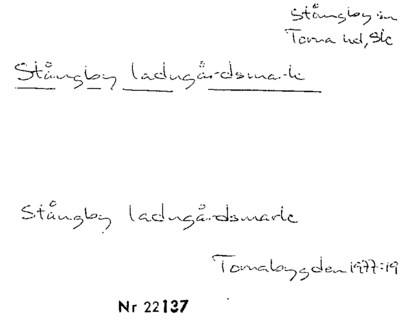 Stångby sn
Torna hd, Sk
Stångby ladugårdsmark
Stångby ladugårdsmark
Tornabygden 1977:19
Nr 22137